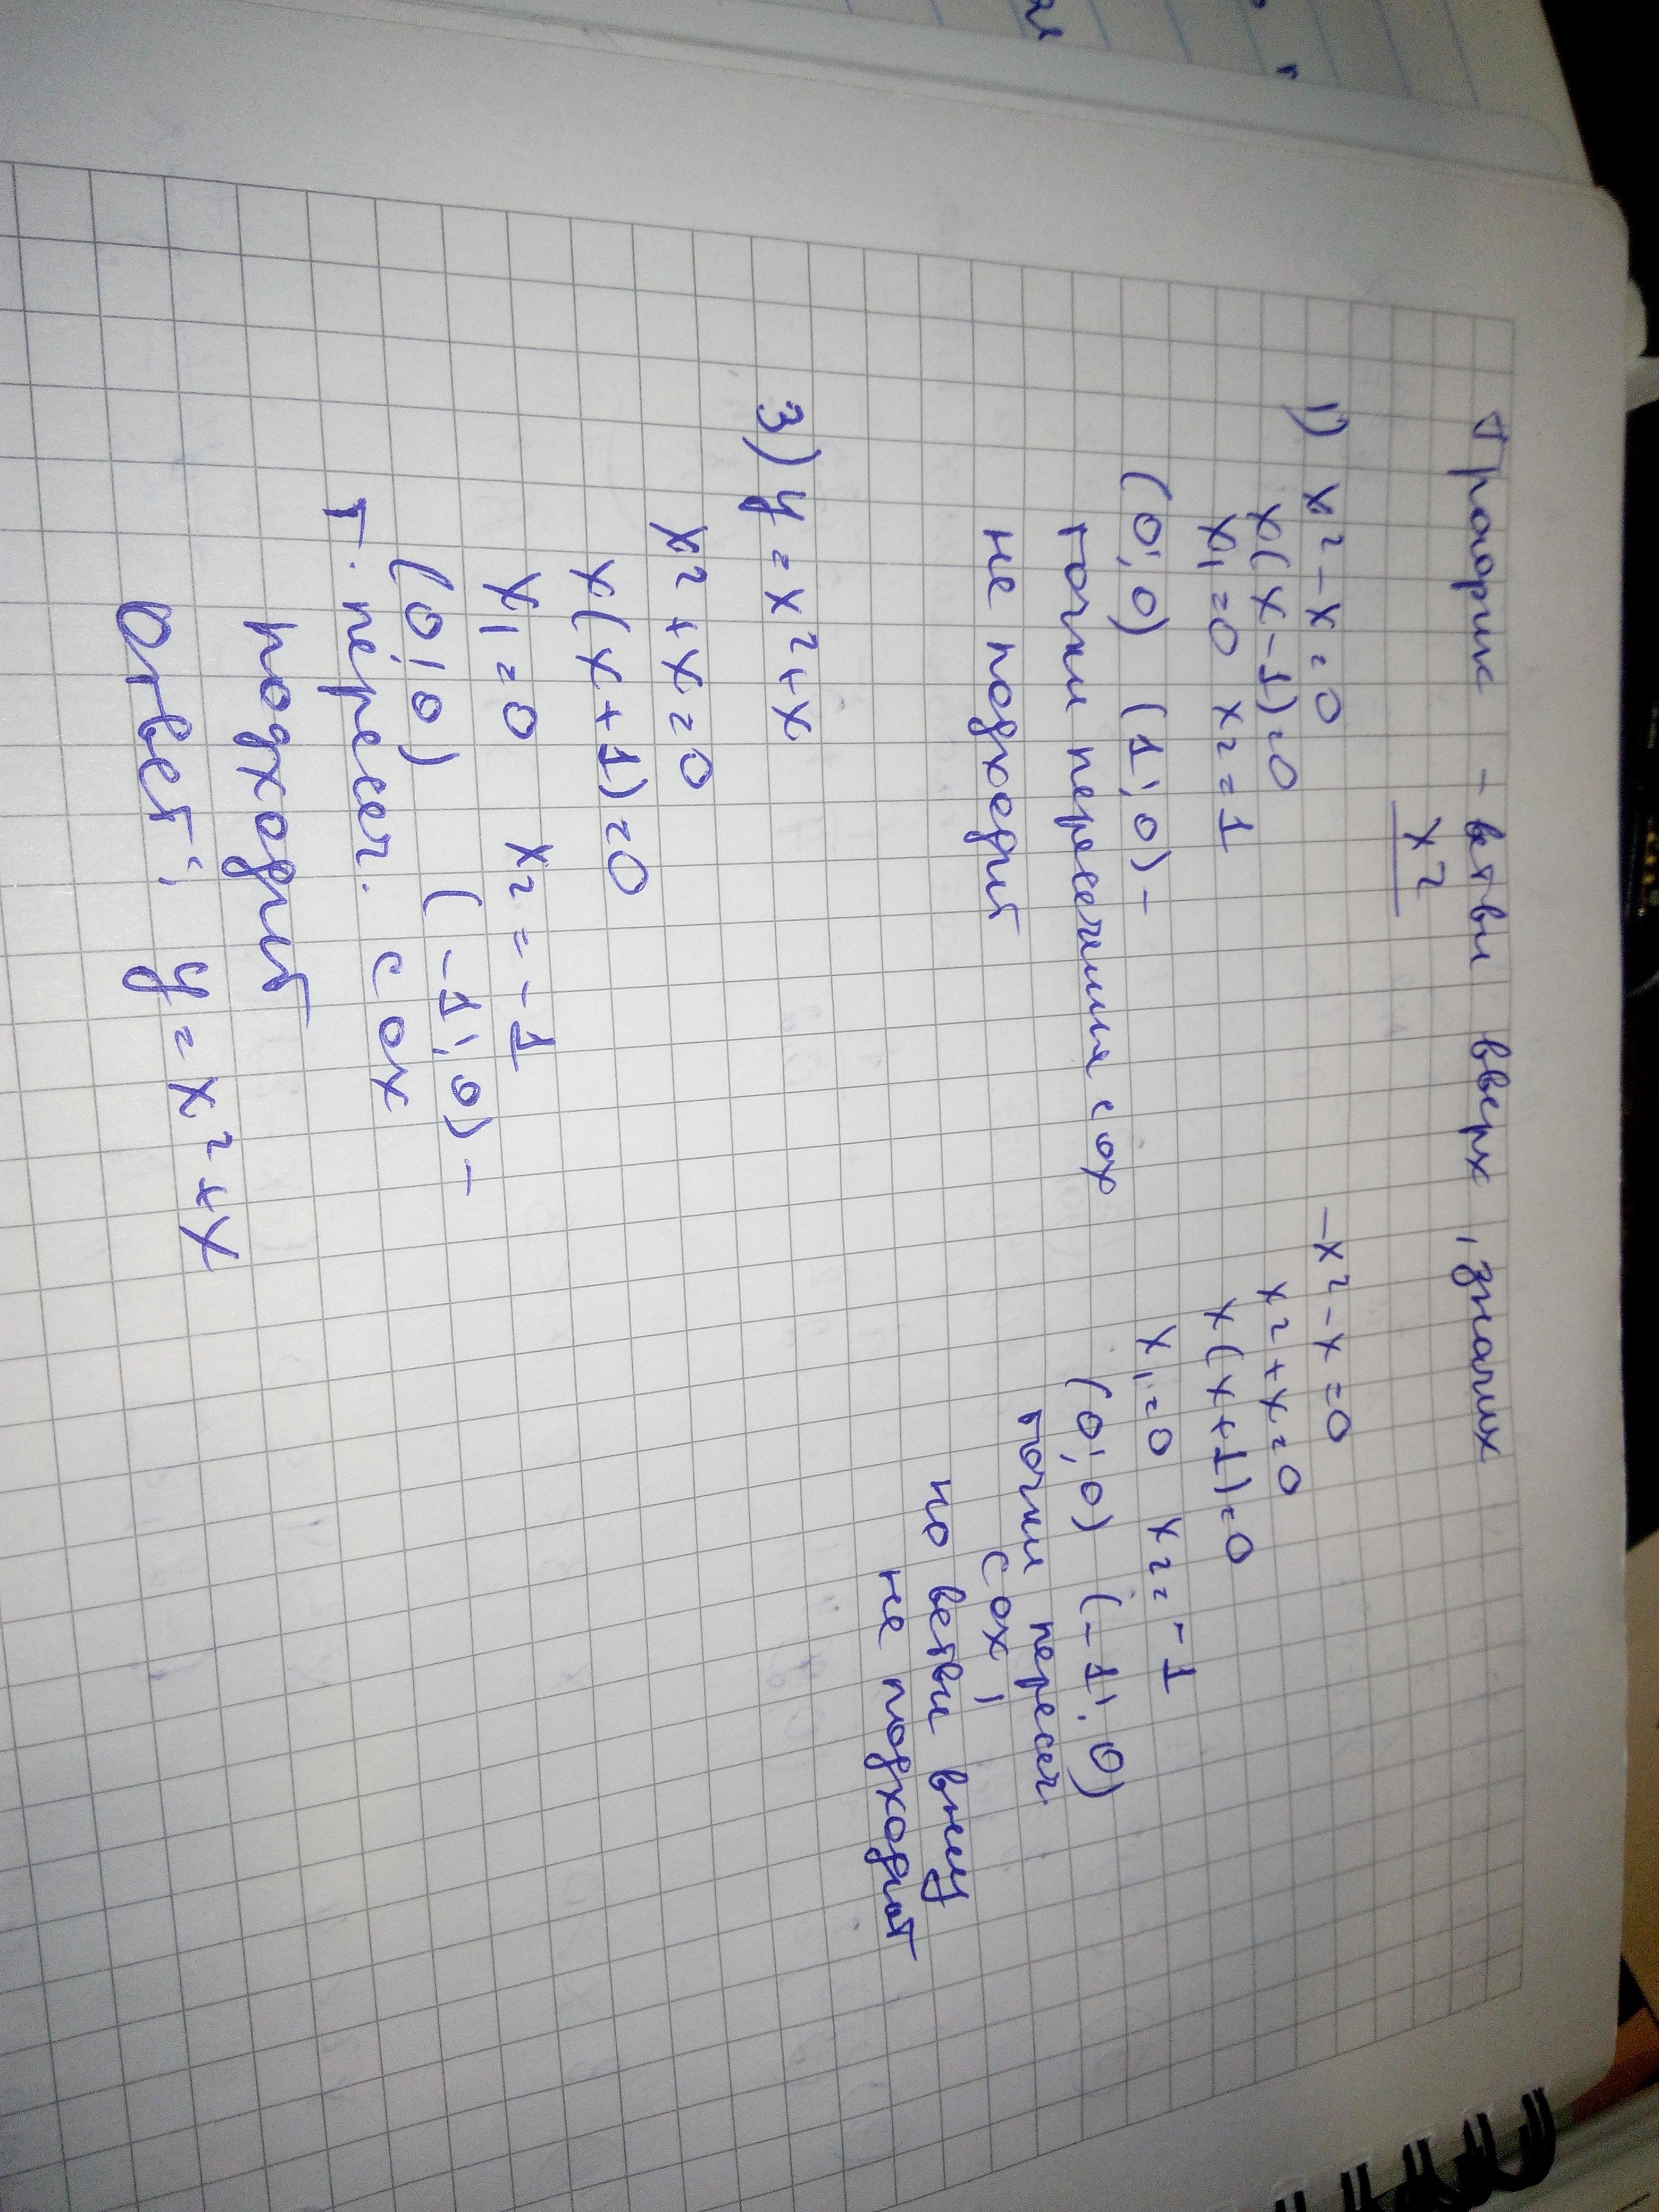 График - ветви вверх, значит
x²
1) x² - x = 0
x(x-1)=0
x₁=0 x₂=1
(0;0) (1;0)-
точки пересечения с ох
не подходит
-x² - x = 0
x² + x = 0
x(x+1)=0
x₁=0 x₂=-1
(0;0) (-1;0)
точки пересеч.
с ох,
но ветви вниз
не подходит
3) y = x² + x
x² + x = 0
x(x+1)=0
x₁=0 x₂=-1
(0;0) (-1;0)-
т. пересеч. с ох
подходит
Ответ: y = x² + x